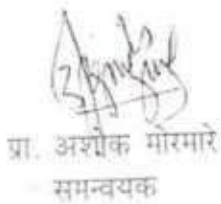 प्रा. अशोक मोरमारे
समन्वयक